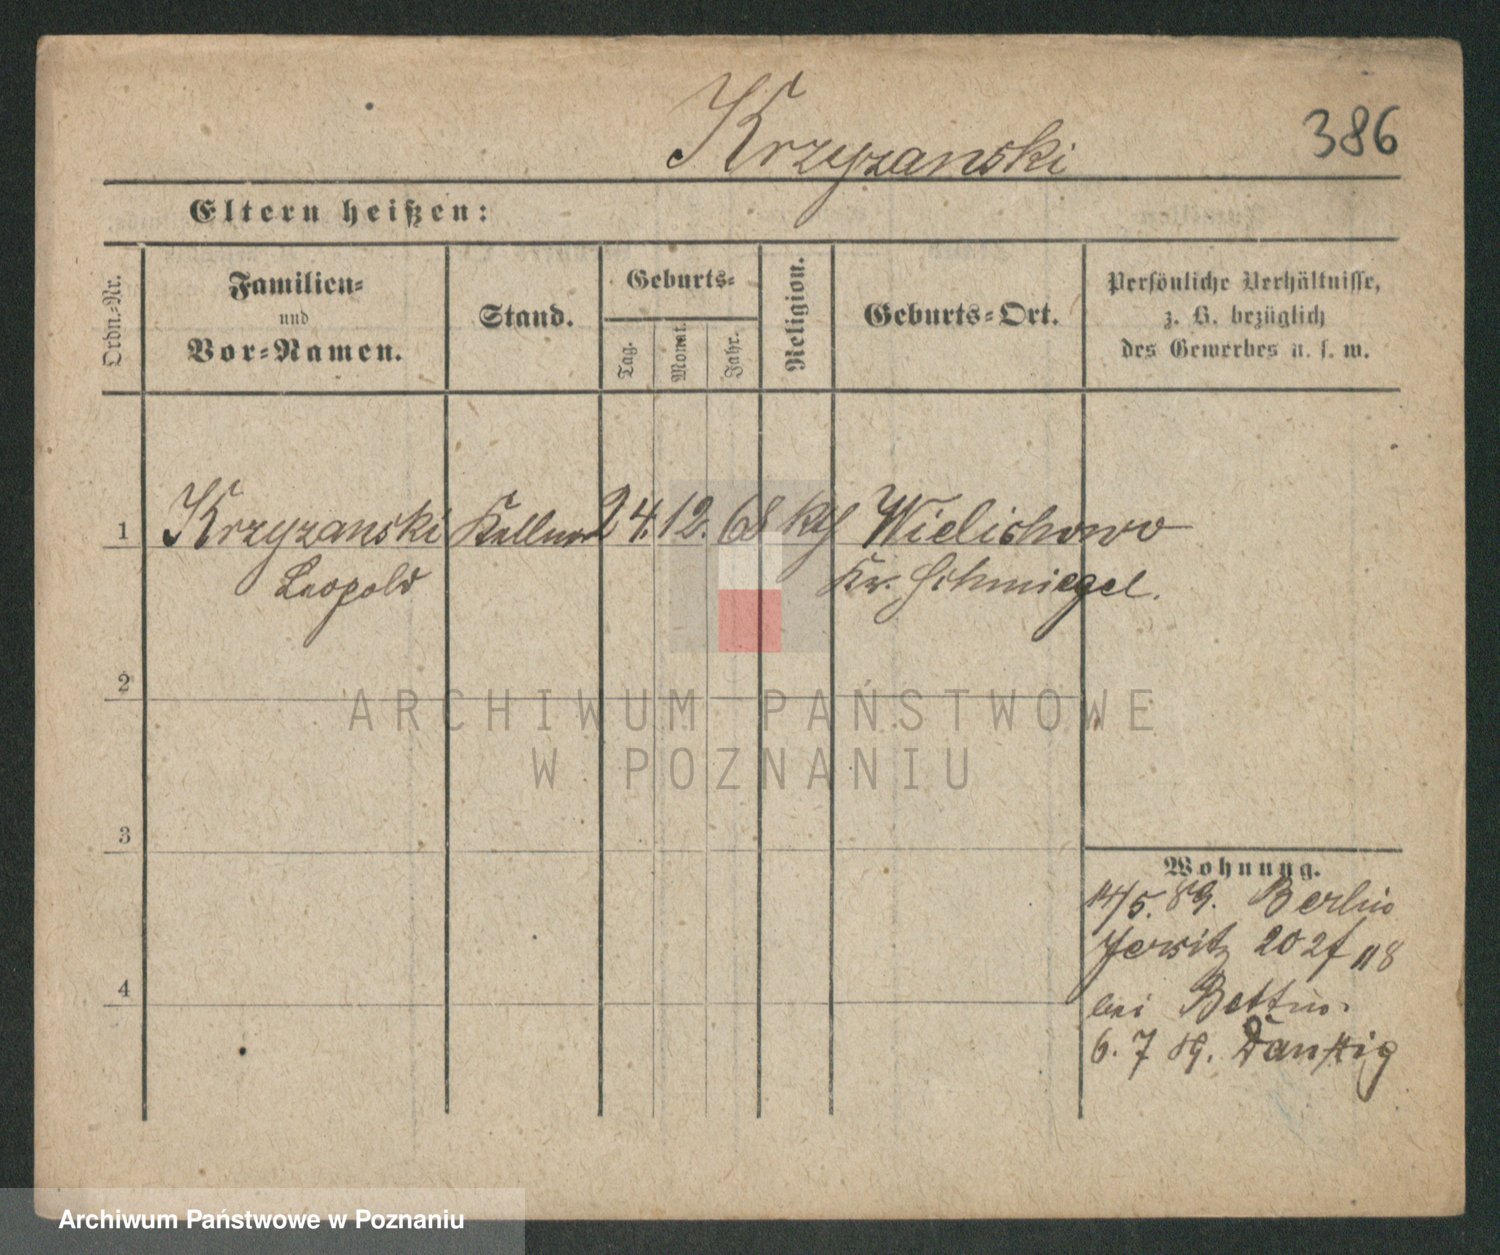 Krzyzanski
386
Eltern heißen:
Ordn.-Nr.
Familien-
und
Vor-Namen.
Stand.
Geburts-
Tag.
Monat.
Jahr.
Religion.
Geburts-Ort.
Persönliche Verhältnisse,
z. B. bezüglich
des Gewerbes u. s. w.
1 Krzyzanski Kellner 24. 12. 68 kth Wielichowo
Leopold Kr. Schmiegel.
2
3
4
Wohnung.
14/5. 89. Berlin
Jersitz 202f
bei
6. 7 89. Danzig
ARCHIWUM PAŃSTWOWE
W POZNANIU
Archiwum Państwowe w Poznaniu